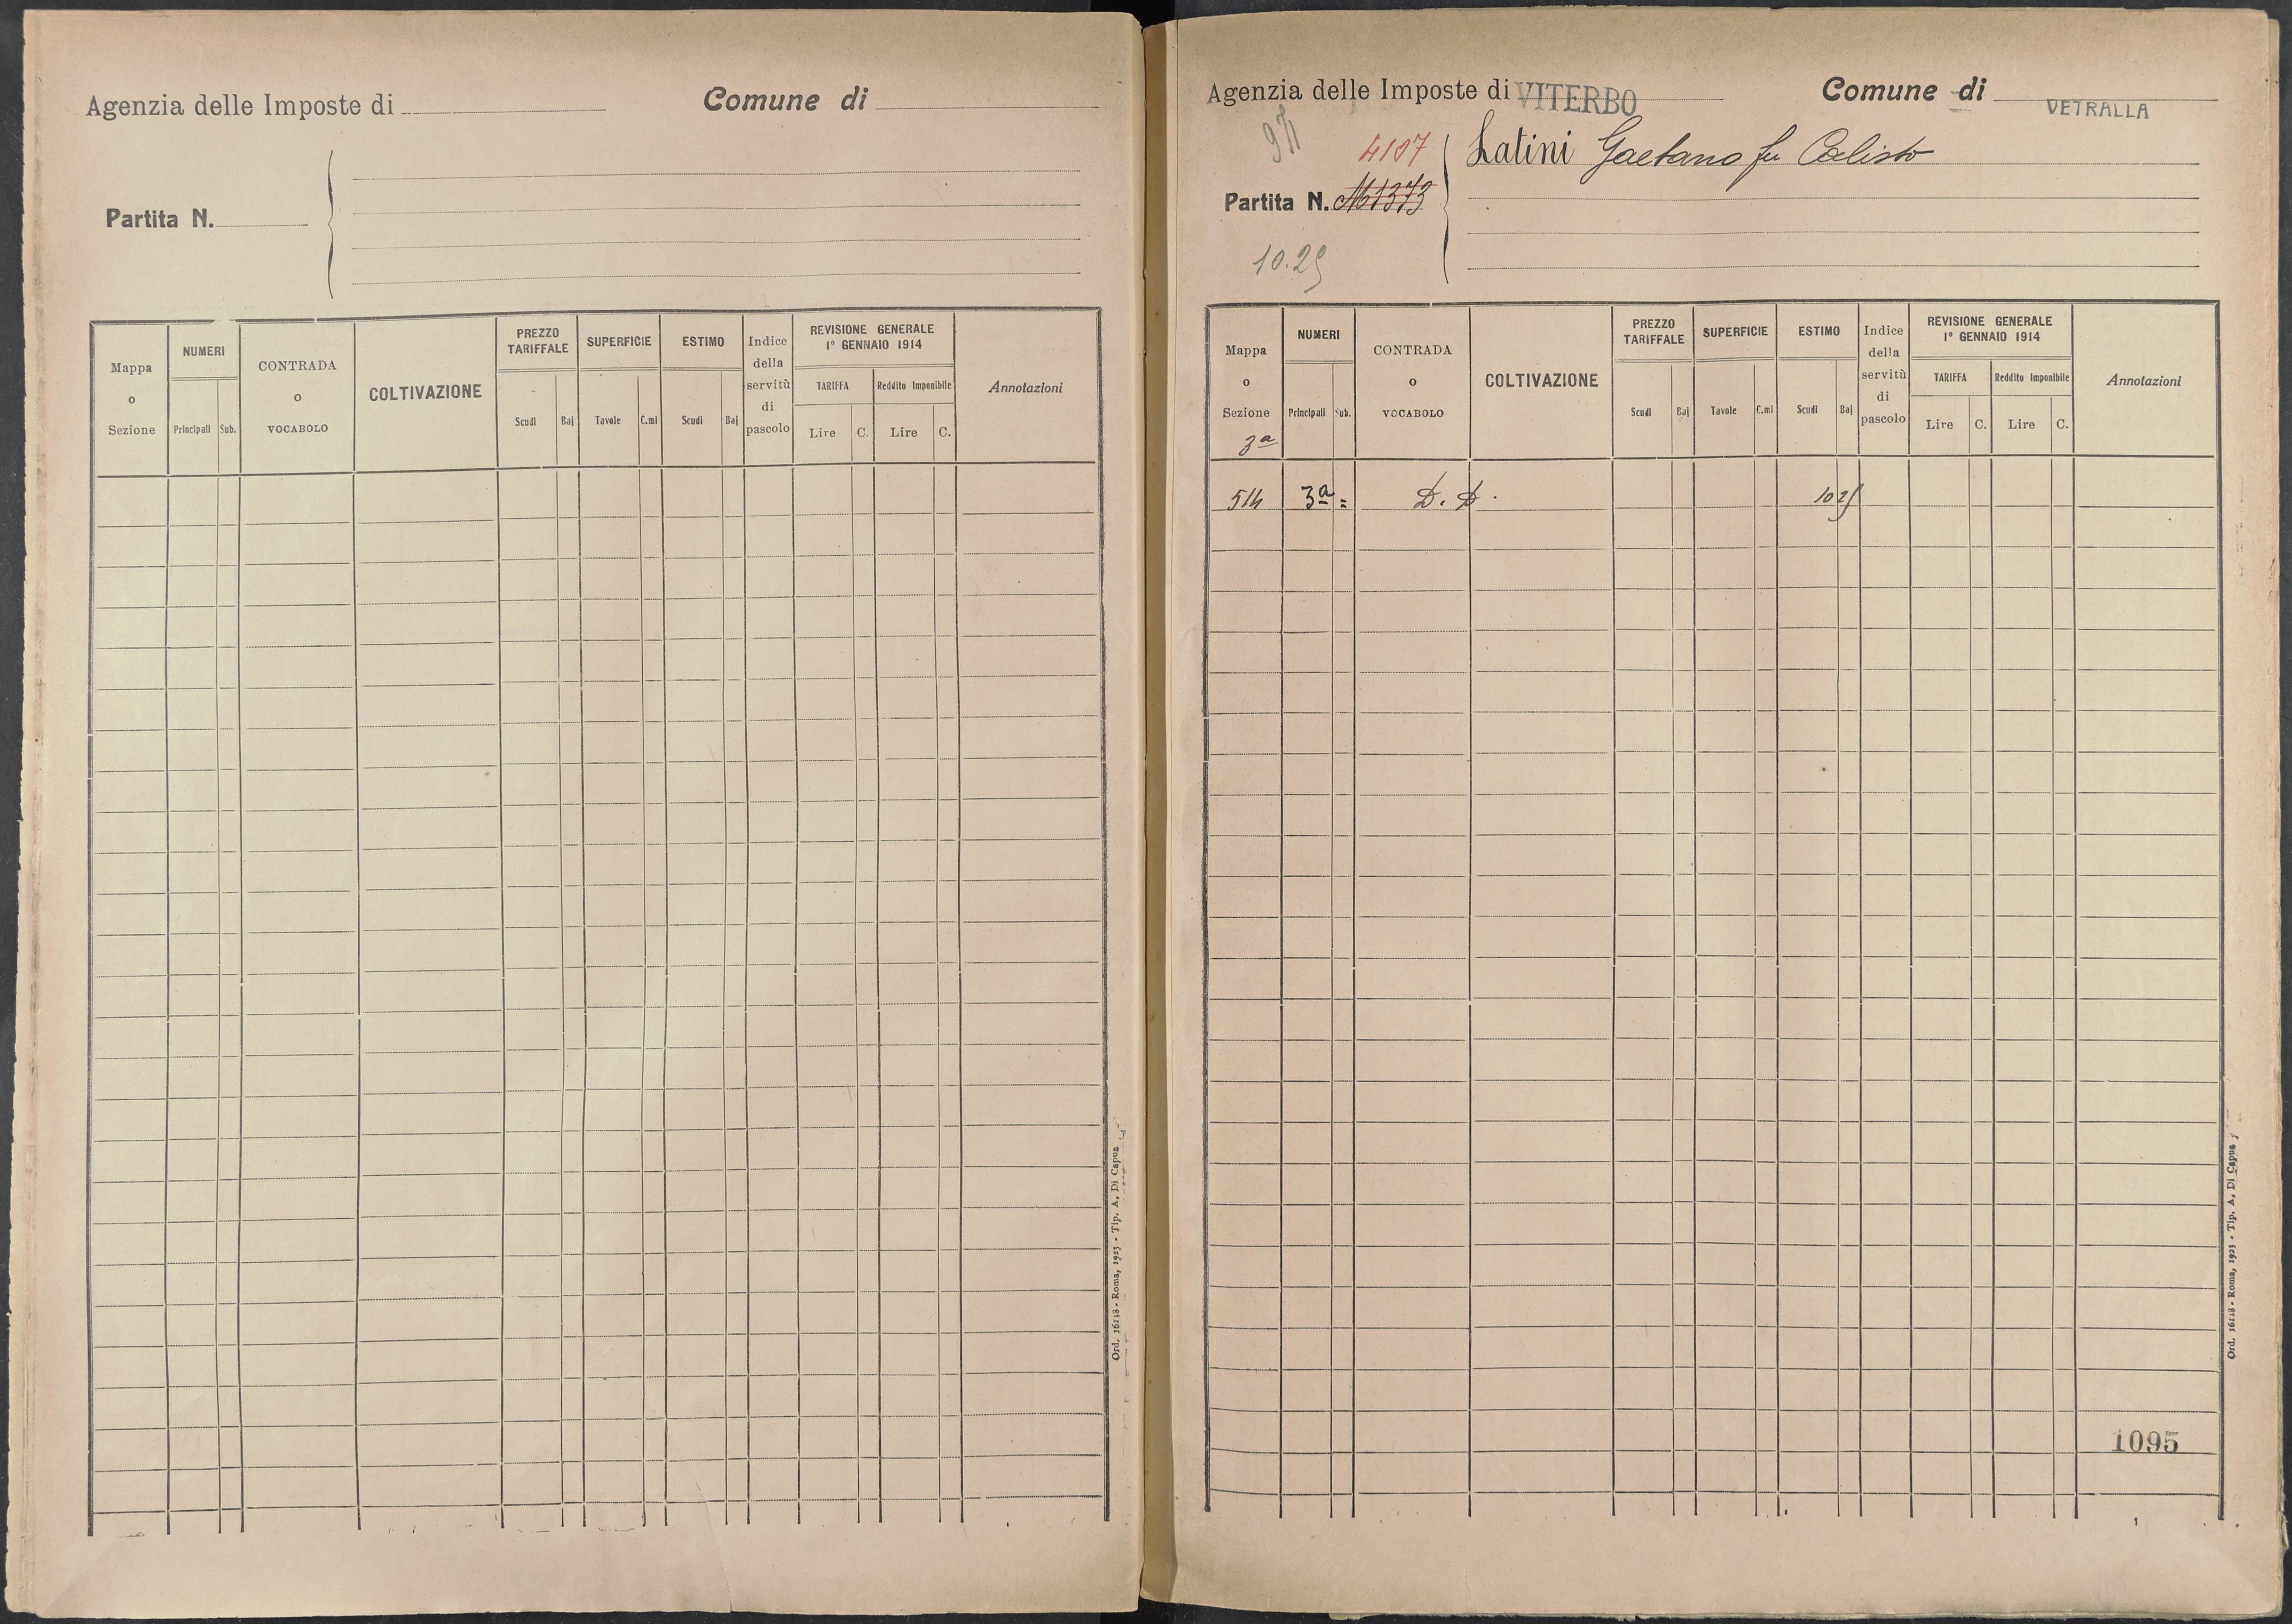 Agenzia delle Imposte di
Comune di
Partita N.
Mappa o Sezione
NUMERI
Principali Sub.
CONTRADA o VOCABOLO
COLTIVAZIONE
PREZZO TARIFFALE
Scudi Baj
SUPERFICIE
Tavole C.mi
ESTIMO
Scudi Baj
Indice della servitù di pascolo
REVISIONE GENERALE
1° GENNAIO 1914
TARIFFA
Lire C.
Reddito Imponibile
Lire C.
Annotazioni
Ord. 16118 - Roma, 1923 - Tip. A. Di Capua
Agenzia delle Imposte di VITERBO
Comune di VETRALLA
4107
Latini Gaetano fu Calisto
Partita N. M1373
10.25
Mappa o Sezione
3ª
NUMERI
Principali Sub.
CONTRADA o VOCABOLO
COLTIVAZIONE
PREZZO TARIFFALE
Scudi Baj
SUPERFICIE
Tavole C.mi
ESTIMO
Scudi Baj
Indice della servitù di pascolo
REVISIONE GENERALE
1° GENNAIO 1914
TARIFFA
Lire C.
Reddito Imponibile
Lire C.
Annotazioni
514 3ª = D. D. 10 25
1095
Ord. 16118 - Roma, 1923 - Tip. A. Di Capua